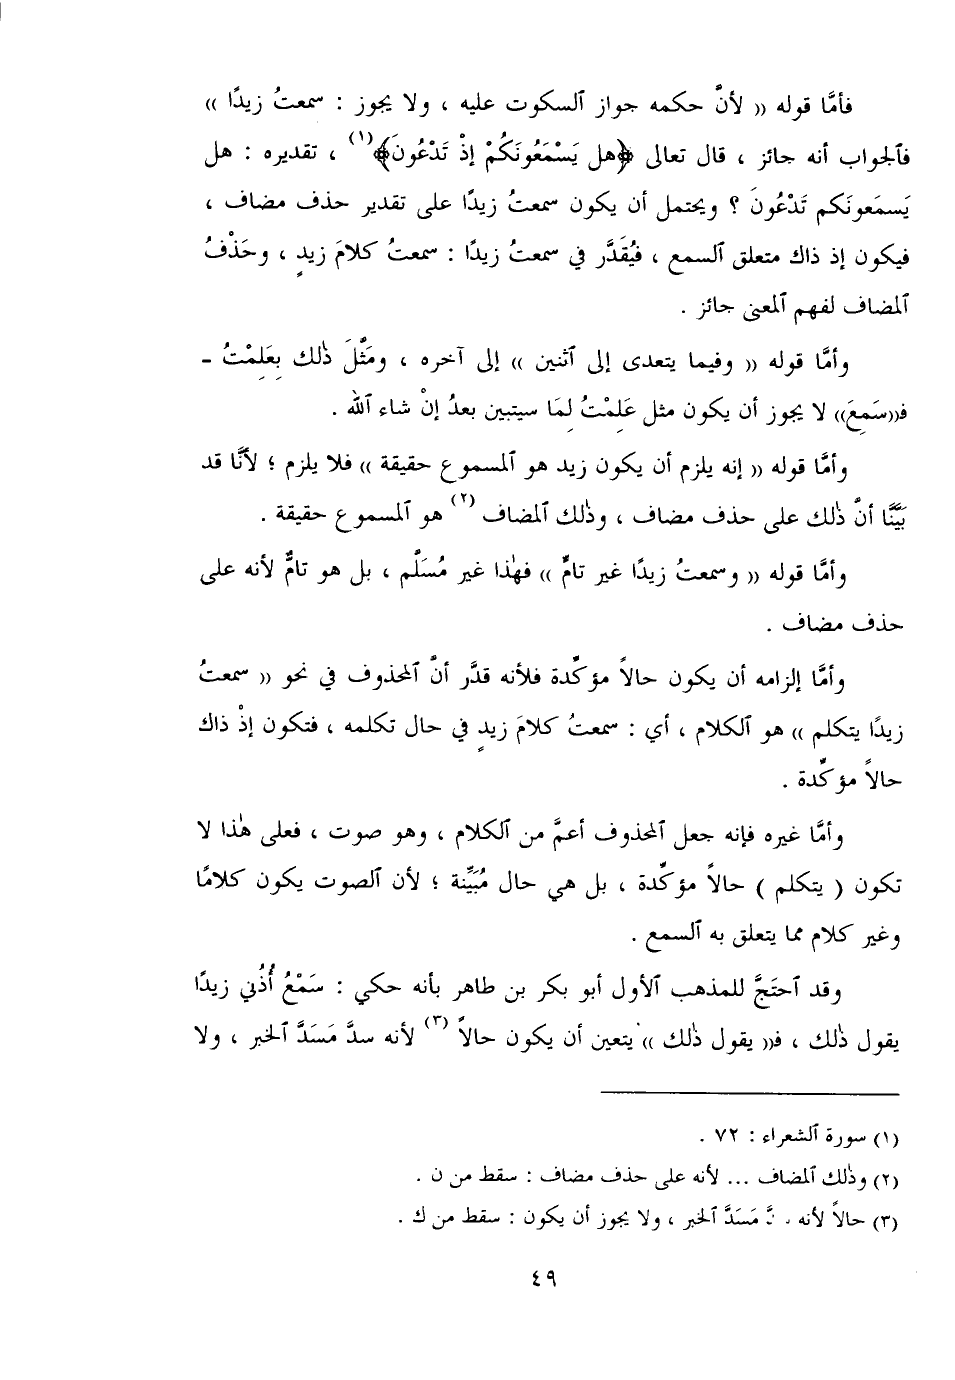 فأمَّا قوله « لأنَّ حكمه جواز ٱلسكوت عليه ، ولا يجوز : سمعتُ زيدًا »
فٱلجواب أنه جائز ، قال تعالى ﴿هل يَسْمَعُونَكُمْ إذْ تَدْعُونَ﴾(١) ، تقديره : هل
يَسمَعونَكم تَدْعُونَ ؟ ويحتمل أن يكون سمعتُ زيدًا على تقدير حذف مضاف ،
فيكون إذ ذاك متعلق ٱلسمع ، فيُقَدَّر في سمعتُ زيدًا : سمعتُ كلامَ زيدٍ ، وحَذْفُ
ٱلمضاف لفهم ٱلمعنى جائز .
وأمَّا قوله « وفيما يتعدى إلى ٱثنين » إلى آخره ، ومَثَّلَ ذٰلك بِعَلِمْتُ ـ
فـ«سَمِعَ» لا يجوز أن يكون مثل عَلِمْتُ لِمَا سيتبين بعدُ إنْ شاء ٱلله .
وأمَّا قوله « إنه يلزم أن يكون زيد هو ٱلمسموع حقيقة » فلا يلزم ؛ لأنَّا قد
بَيَّنَّا أنَّ ذٰلك على حذف مضاف ، وذٰلك ٱلمضاف (٢) هو ٱلمسموع حقيقة .
وأمَّا قوله « وسمعتُ زيدًا غير تامٍّ » فهٰذا غير مُسَلَّم ، بل هو تامٌّ لأنه على
حذف مضاف .
وأمَّا إلزامه أن يكون حالاً مؤكِّدة فلأنه قدَّر أنَّ ٱلمحذوف في نحو « سمعتُ
زيدًا يتكلم » هو ٱلكلام ، أي : سمعتُ كلامَ زيدٍ في حال تكلمه ، فتكون إذْ ذاك
حالاً مؤكِّدة .
وأمَّا غيره فإنه جعل ٱلمحذوف أعمَّ من ٱلكلام ، وهو صوت ، فعلى هٰذا لا
تكون ( يتكلم ) حالاً مؤكِّدة ، بل هي حال مُبَيِّنة ؛ لأن ٱلصوت يكون كلامًا
وغير كلام مما يتعلق به ٱلسمع .
وقد ٱحتَجَّ للمذهب ٱلأول أبو بكر بن طاهر بأنه حكي : سَمْعُ أُذُني زيدًا
يقول ذٰلك ، فـ« يقول ذٰلك » يتعين أن يكون حالاً (٣) لأنه سدَّ مَسَدَّ ٱلخبر ، ولا
(١) سورة ٱلشعراء : ٧٢ .
(٢) وذٰلك ٱلمضاف ... لأنه على حذف مضاف : سقط من ن .
(٣) حالاً لأنه مَسَدَّ ٱلخبر ، ولا يجوز أن يكون : سقط من ك .
٤٩